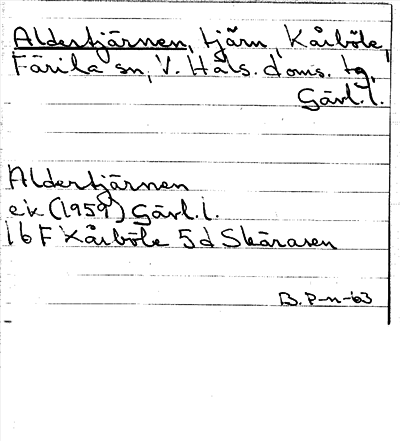 Aldertjärnen, tjärn, Kårböle,
Färila sn, V. Häls. doms. tg,
Gävl. l.
Aldertjärnen
ek (1959) Gävl. l.
16 F Kårböle 5d Skärasen
B. P-n -63